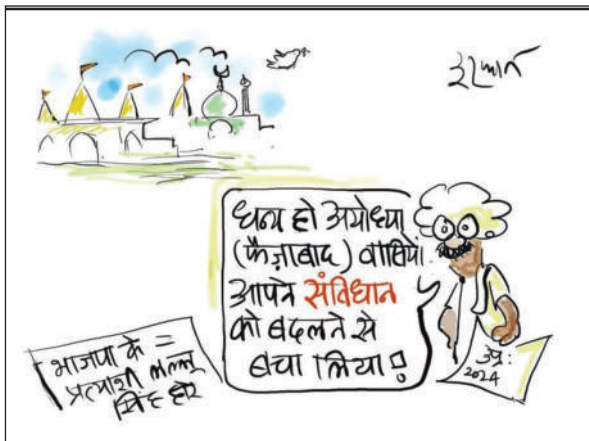 इरफान
धन्य हो अयोध्या
(फैज़ाबाद) वासियों
आपने संविधान
को बदलने से
बचा लिया!
भाजपा के =
प्रत्याशी लल्लू
सिंह हारे
उप्र:
2024